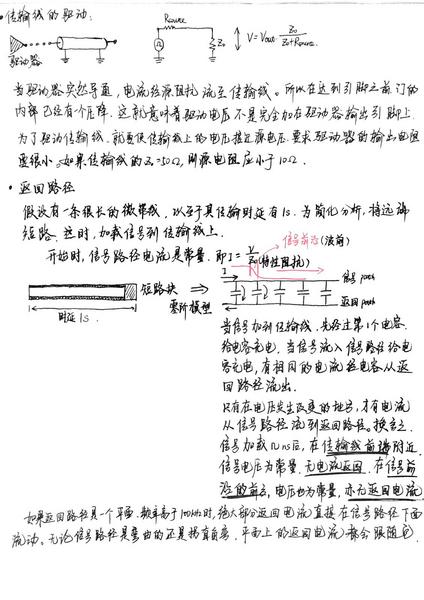 · 传输线的驱动:
Rsource
驱动器
Z₀
V = Vout · Z₀/(Z₀+Rsource)
当驱动器突然导通,电流经源阻抗流至传输线。所以在达到引脚之前门的
内部已经有个压降。这就意味着驱动电压不是完全加在驱动器输出引脚上
为了驱动传输线,就要使传输线上的电压接近源电压,要求驱动器的输出电阻
要很小。如果传输线的Z₀=50Ω,则源电阻应小于10Ω。
· 返回路径
假设有一条很长的微带线,以至于其传输时延有1s。为简化分析,将远端
短路。这时,加载信号到传输线上。
信号前沿(波前)
开始时,信号路径电流是常量,即I = V/Z₀(特性阻抗)
I
信号path
短路块
⇒
零阶模型
返回path
时延1s
当信号加到传输线,先经过第1个电容
给电容充电,当信号流入信号路径给电
容充电,有相同的电流经电容从返
回路径流出.
只有在电压发生改变的地方,才有电流
从信号路径流到返回路径。换言之
信号加载n ns后,在传输线前端附近
信号电压为常量,无电流返回.在信号前
沿的前方,电压也为常量,亦无返回电流
如果返回路径是一个平面,频率高于100kHz时,绝大部分返回电流直接在信号路径下面
流动。无论信号路径是弯曲的还是拐直角弯,平面上的返回电流都会跟随它